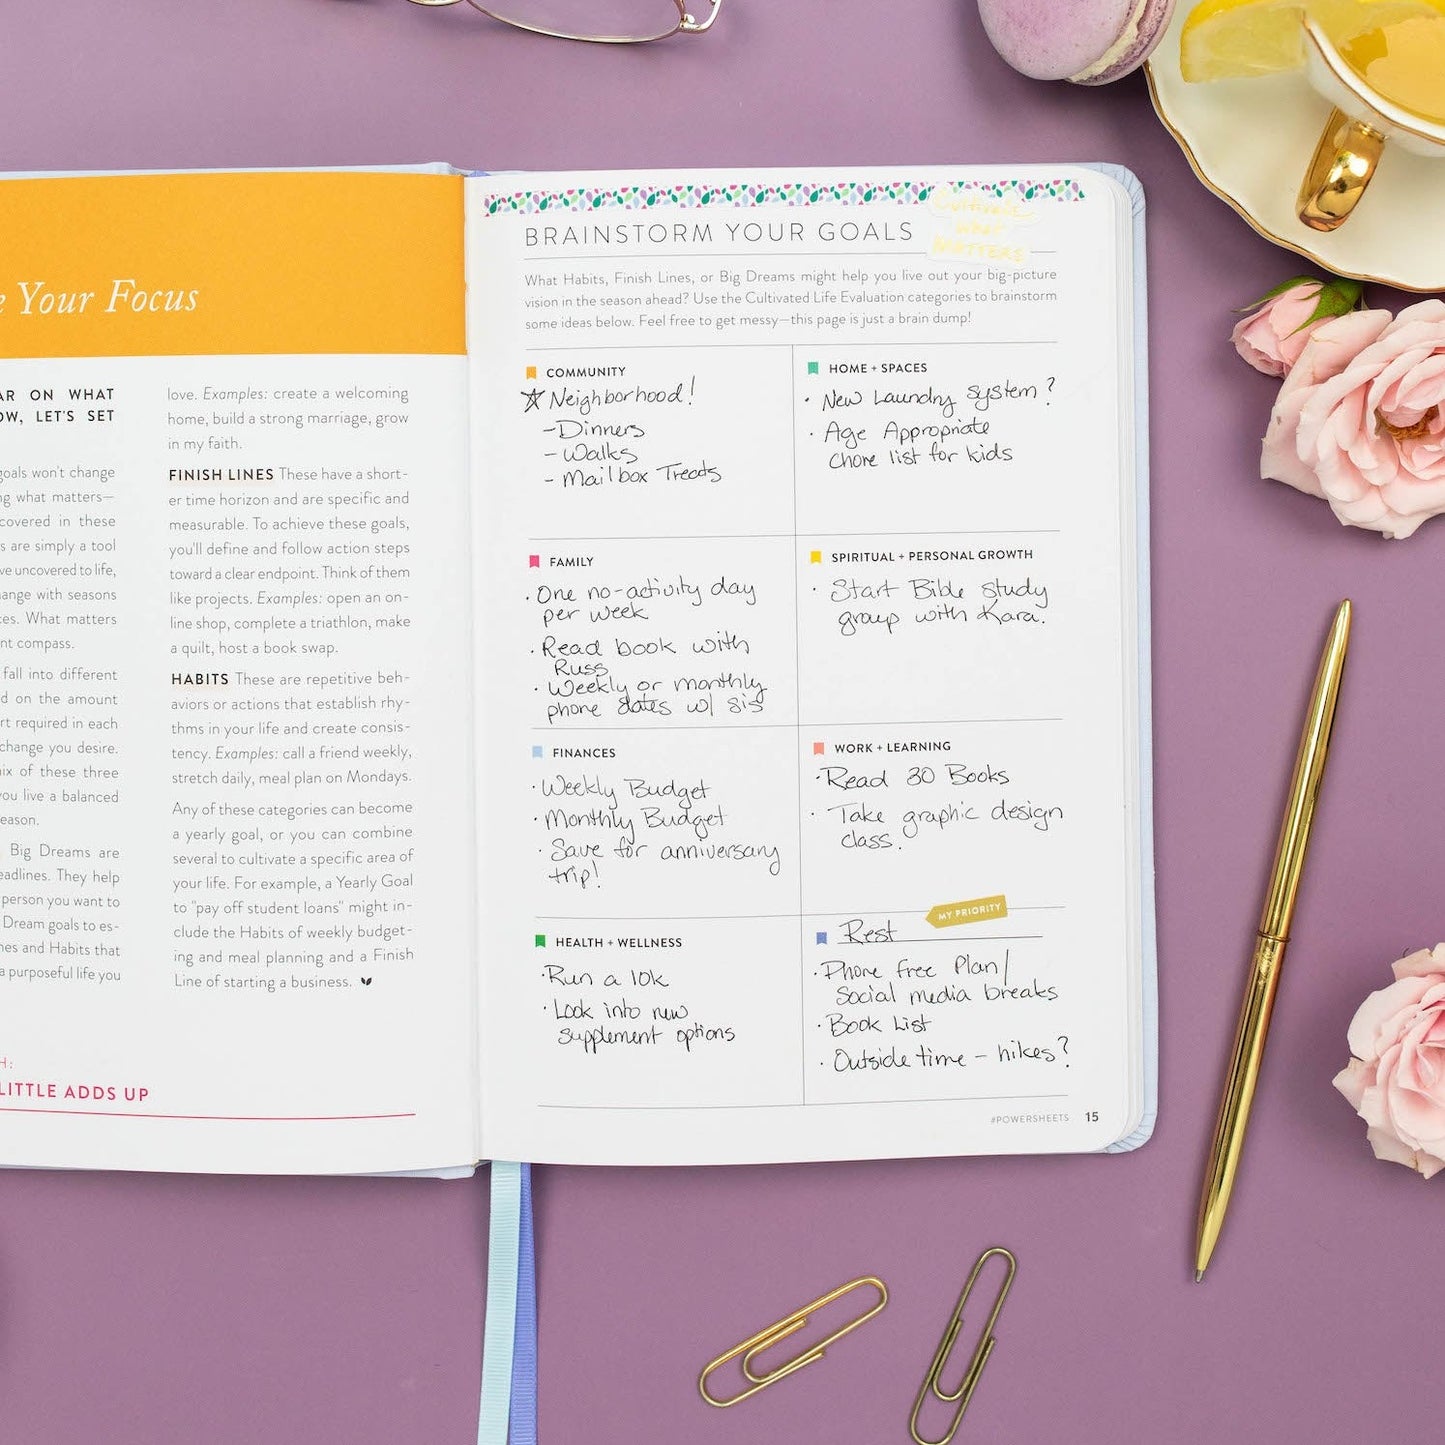 Your Focus
AR ON WHAT
OW, LET'S SET
goals won't change
ng what matters—
covered in these
s are simply a tool
ve uncovered to life,
ange with seasons
ces. What matters
nt compass.
fall into different
d on the amount
rt required in each
change you desire.
ix of these three
you live a balanced
eason.
Big Dreams are
eadlines. They help
person you want to
Dream goals to es-
nes and Habits that
a purposeful life you
H:
LITTLE ADDS UP
love. Examples: create a welcoming
home, build a strong marriage, grow
in my faith.
FINISH LINES These have a short-
er time horizon and are specific and
measurable. To achieve these goals,
you'll define and follow action steps
toward a clear endpoint. Think of them
like projects. Examples: open an on-
line shop, complete a triathlon, make
a quilt, host a book swap.
HABITS These are repetitive beh-
aviors or actions that establish rhy-
thms in your life and create consis-
tency. Examples: call a friend weekly,
stretch daily, meal plan on Mondays.
Any of these categories can become
a yearly goal, or you can combine
several to cultivate a specific area of
your life. For example, a Yearly Goal
to "pay off student loans" might in-
clude the Habits of weekly budget-
ing and meal planning and a Finish
Line of starting a business.
Cultivate
what
MATTERS
BRAINSTORM YOUR GOALS
What Habits, Finish Lines, or Big Dreams might help you live out your big-picture
vision in the season ahead? Use the Cultivated Life Evaluation categories to brainstorm
some ideas below. Feel free to get messy—this page is just a brain dump!
COMMUNITY
Neighborhood!
- Dinners
- Walks
- Mailbox Treats
HOME + SPACES
· New Laundry System?
· Age Appropriate
chore list for kids
FAMILY
· One no-activity day
per week
· Read book with
Russ
· Weekly or monthly
phone dates w/ sis
SPIRITUAL + PERSONAL GROWTH
· Start Bible study
group with Kara.
FINANCES
· Weekly Budget
· Monthly Budget
· Save for anniversary
trip!
WORK + LEARNING
· Read 30 Books
· Take graphic design
class.
HEALTH + WELLNESS
· Run a 10k
· Look into new
supplement options
MY PRIORITY
Rest
· Phone free Plan/
Social media breaks
· Book List
· Outside time - hikes?
#POWERSHEETS 15